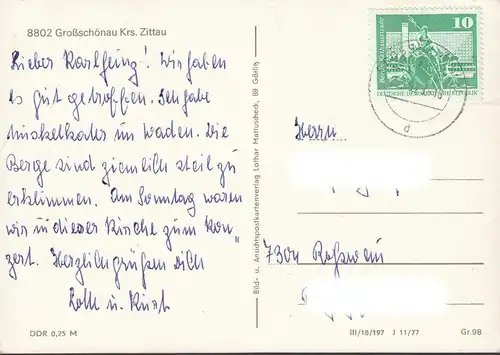 8802 Großschönau Krs. Zittau
Lieber Karlheinz! Wir haben
es gut getroffen. Ich habe
Muskelkater im Waden. Die
Berge sind ziemlich steil zu
erklimmen. Am Sonntag waren
wir in dieser Kirche zum Kon„
zert. Herzlich grüßen dich
u.
DDR 0,25 M
Bild- u. Ansichtspostkartenverlag Lothar Mattuscheck, 89 Görlitz
10
DEUTSCHE DEMOKRATISCHE REPUBLIK
Herrn
7304 Roßwein
III/18/197 J 11/77
Gr.98